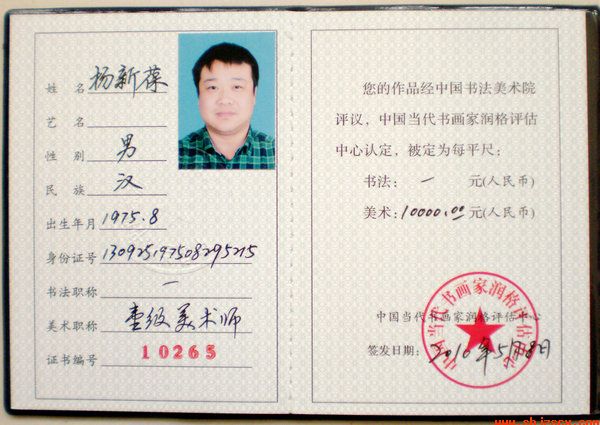 姓 名 杨新葆
艺 名
性 别 男
民 族 汉
出生年月 1975.8
身份证号 130925197508295215
书法职称 一
美术职称 壹级美术师
证书编号 10265
您的作品经中国书法美术院
评议，中国当代书画家润格评估
中心认定，被定为每平尺：
书法： 一 元(人民币)
美术：10000.00元(人民币)
中国当代书画家润格评估中心
签发日期：2010年5月8日
中国当代书画家润格评估中心